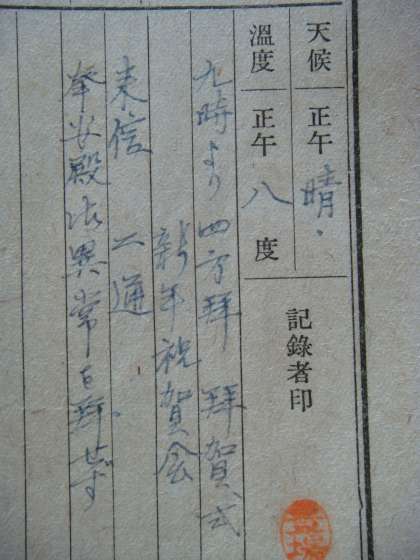 天候 正午 晴、
溫度 正午 八 度
記錄者印
九時より四方拝 拜賀式
新年祝賀会
来信 二通
奉安殿ニ異常ヲ拜セズ